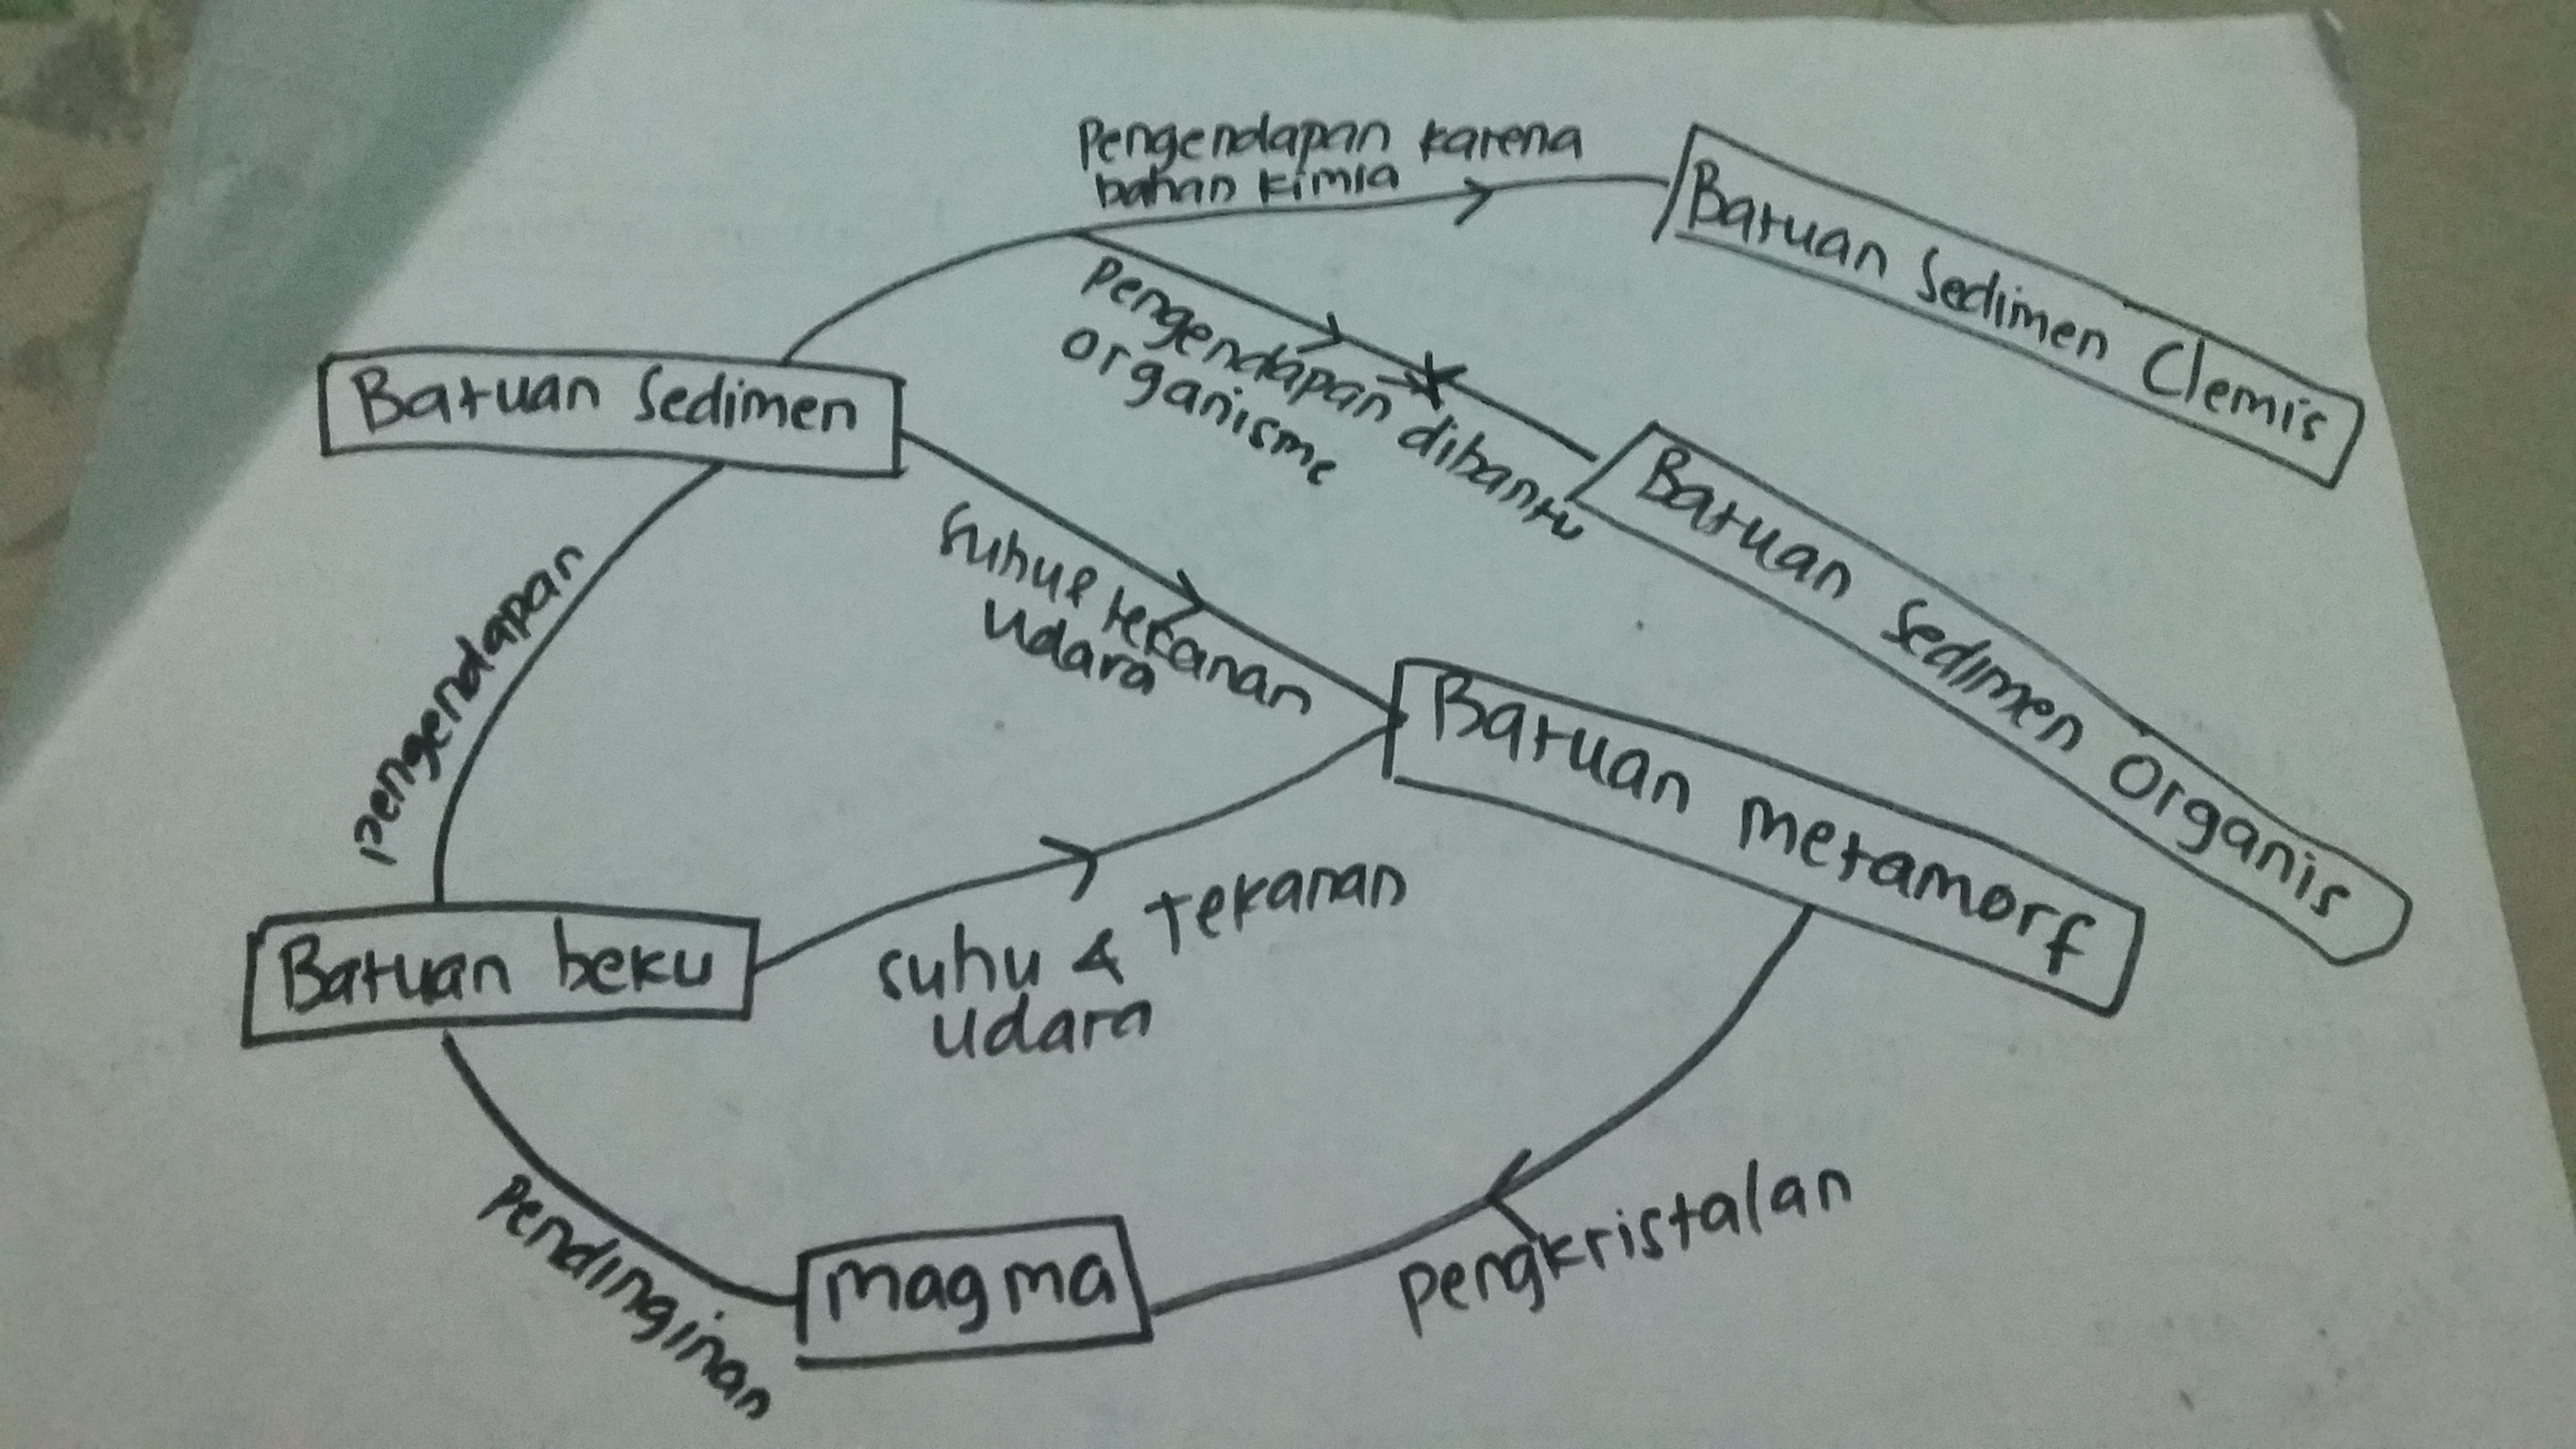 Pengendapan karena
bahan kimia
Batuan Sedimen Clemis
Pengendapan dibantu
organisme
Batuan Sedimen
Batuan Sedimen Organis
Suhu & tekanan
udara
pengendapan
Batuan metamorf
Batuan beku
suhu & tekanan
udara
Pengkristalan
magma
Pendinginan